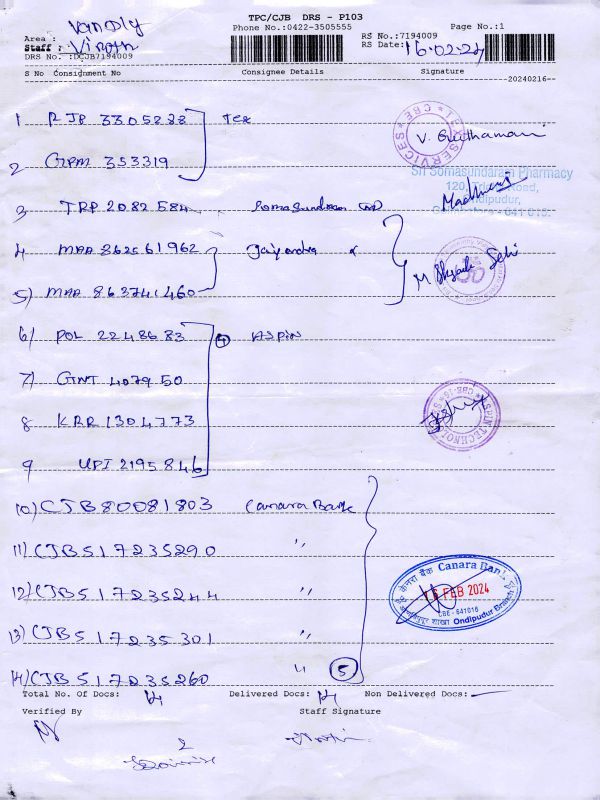 TPC/CJB DRS - P103
Phone No.:0422-3505555
Page No.:1
Vandly
Area :
Staff : Vinoth
DRS No. :DCJB7194009
RS No.:7194009
RS Date: 16-02-24
S No Consignment No Consignee Details Signature
20240216
1 RJP 3305288 Tex
V. Geethamani
TEX SERVICES * CBE *
2 GPM 353319
Sri Somasundaram Pharmacy
Road,
Ondipudur,
- 641 016.
3 TRP 2082584 Somasundram
4 MAA 862561962 Jayendra
5) MAA 863741460
6) POL 2248683 4 ASPIN
7) GNT 407950
8 KRR 1304773
9 UPI 2195846
10) CJB80081803 Canara Bank
11) CJB517235290 "
12) CJB517235244 "
13) CJB517235301 "
14) CJB517235260 " 5
केनरा बैंक Canara Bank
16 FEB 2024
CBE - 641016
शाखा Ondipudur Branch
Total No. Of Docs: 14 Delivered Docs: 14 Non Delivered Docs: —
Verified By Staff Signature